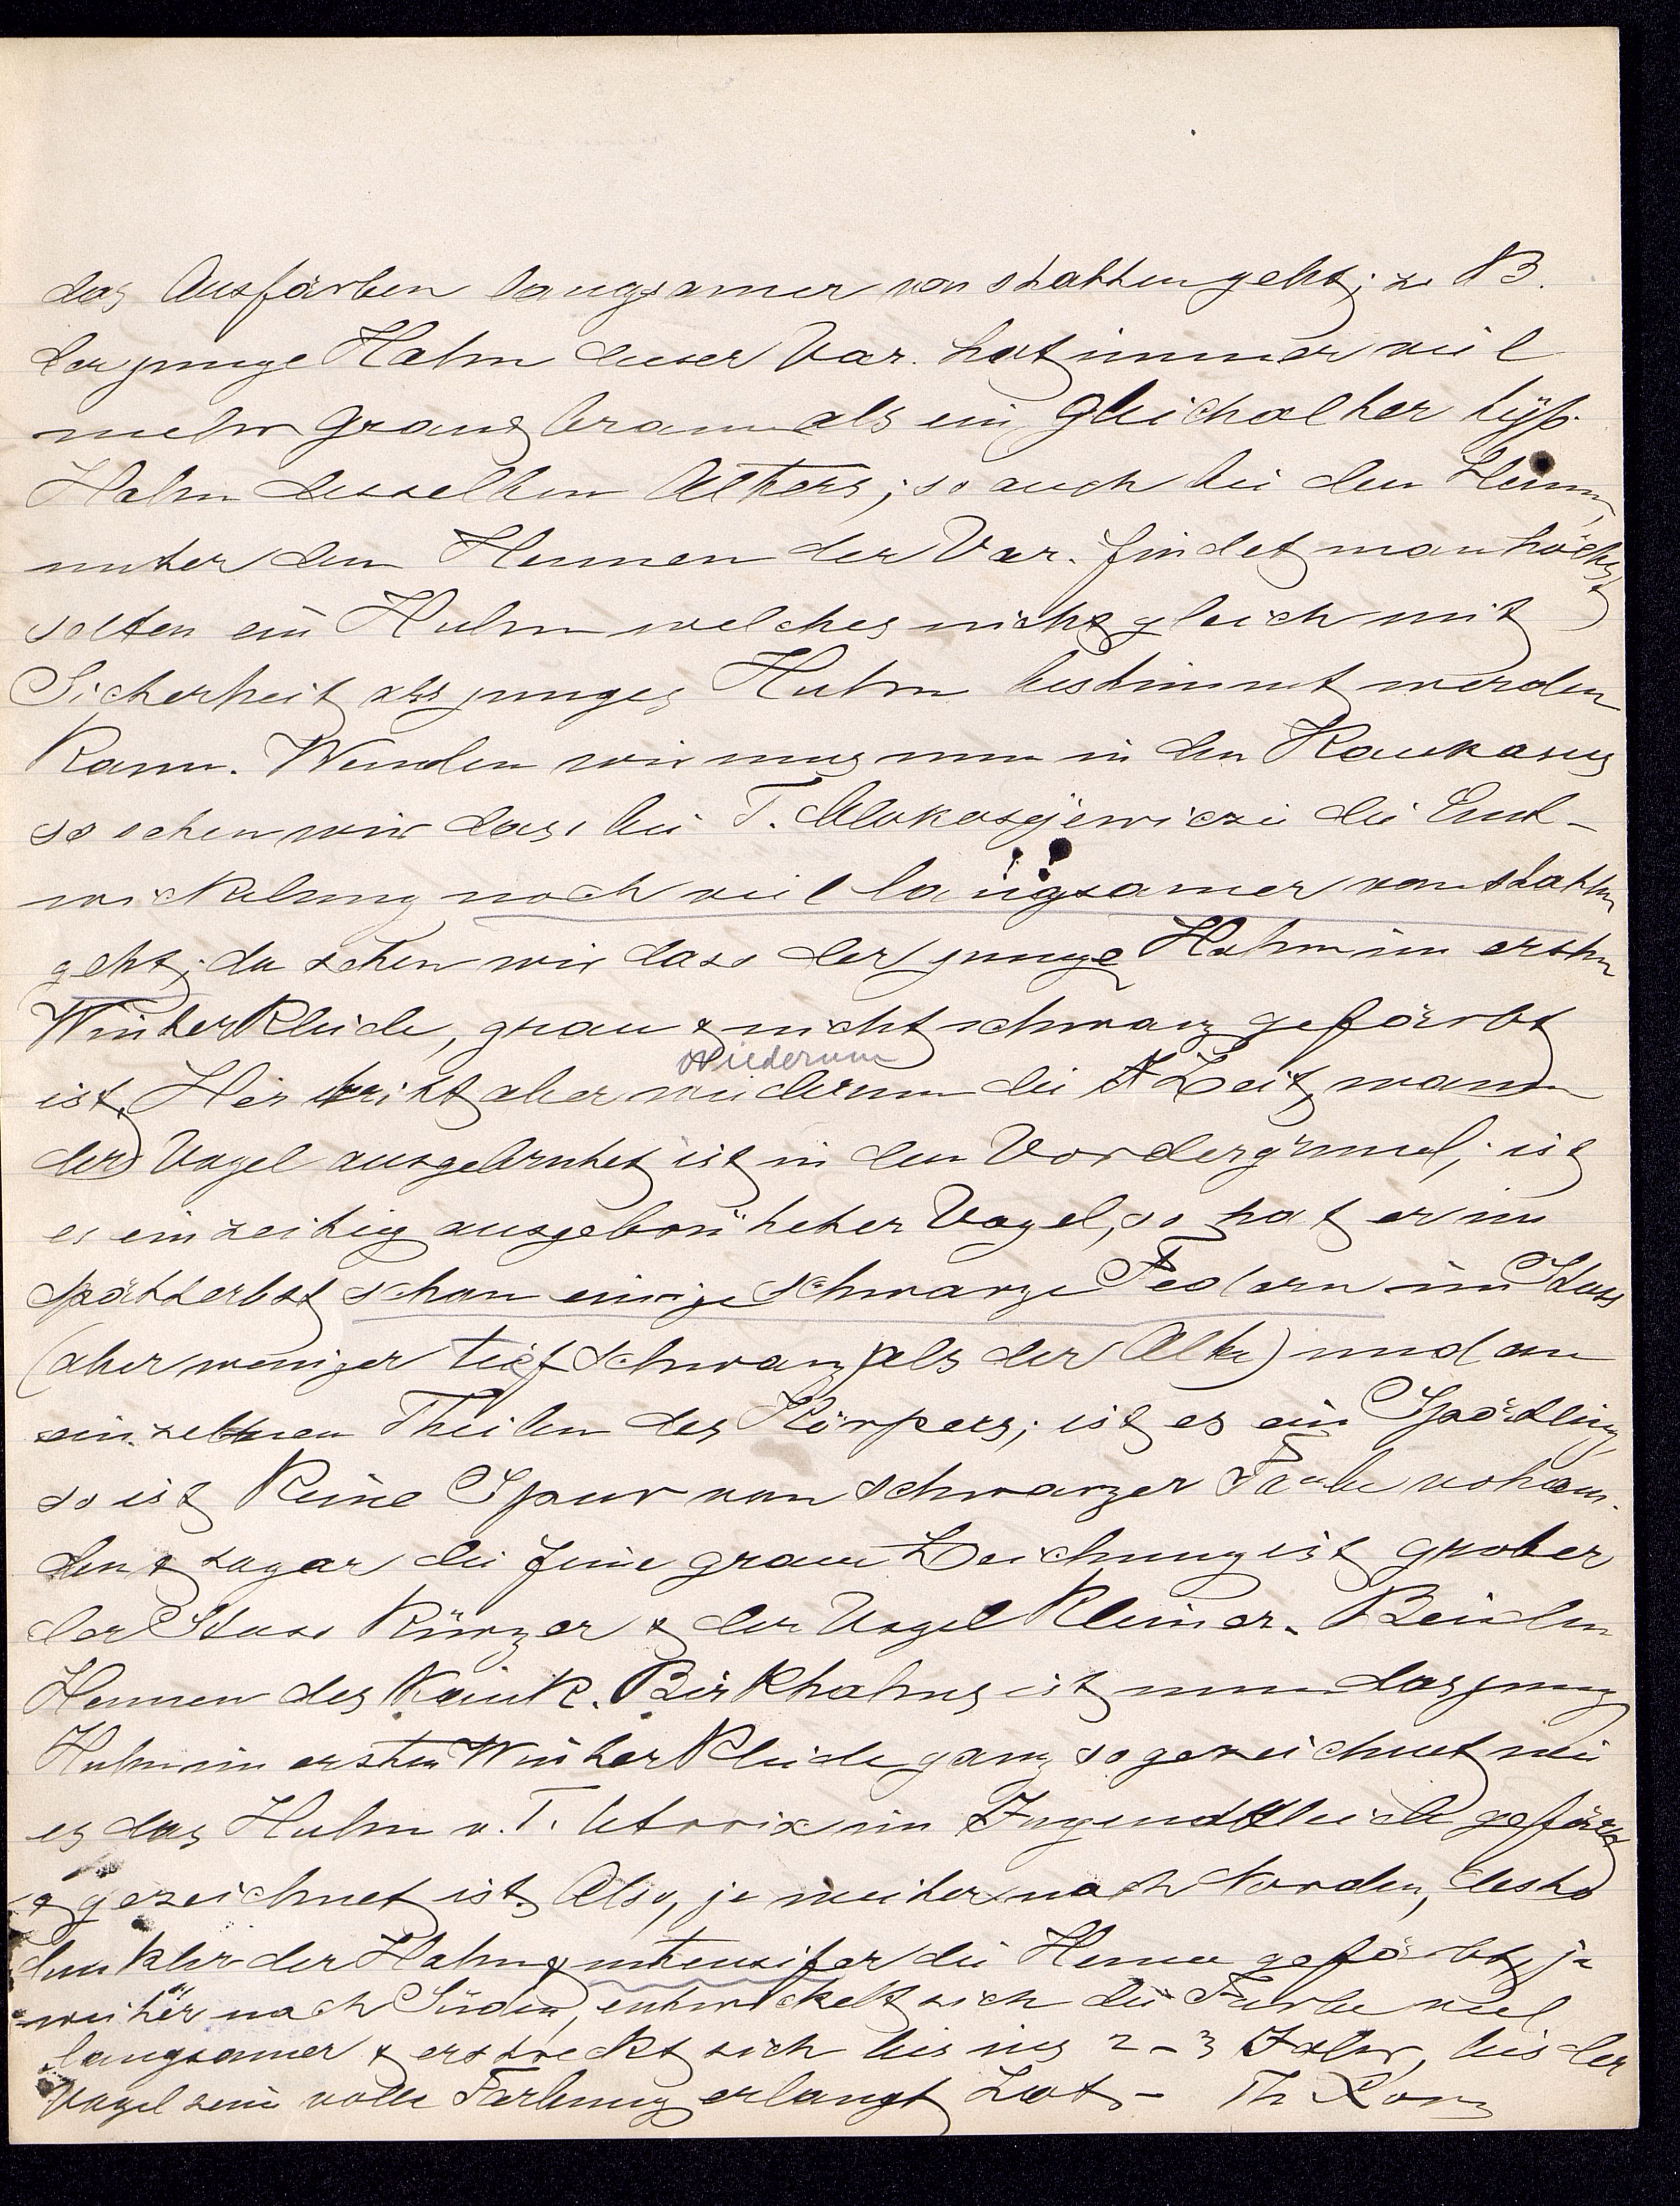 das Ausfärben langsamer von statten geht; z. B.
der junge Hahn dieser Var. hat immer viel
mehr Grau & braun als ein gleichalter typ.
Hahn desselben Alters; so auch bei den Henn,
unter den Hennen der Var. findet man höchst
selten ein Huhn welches nicht gleich mit
Sicherheit als junges Huhn bestimmt werden
kann. Wenden wir uns nun in den Kaukasus
so sehen wir dass bei T. Mlokosjewiczi die Ent-
wickelung noch viel langsamer von statten
geht; da sehen wir dass der junge Hahn im ersten
Winterkleide, grau & nicht schwarz gefärbt
wiederum
ist. Hier tritt aber wiederum die Zeit, wann
der Vogel ausgebrütet ist in den Vordergrund; ist
es ein zeitig ausgebrüteter Vogel, so hat er im
Spätherbst schon einige schwarze Federn im Stoss
(aber weniger tief schwarz als der Alte) und an
einzelnen Theilen des Körpers; ist es ein Spätling,
so ist keine Spur von schwarzer Farbe vohan-
den & sogar die feine graue Zeichnung ist grober
der Stoss kürzer & der Vogel kleiner. Bei den
Hennen des Kauk. Birkhahns ist nun das junge
Huhn im ersten Winterkleide ganz so gezeichnet wie
es das Huhn v. T. tetrix im Jugendkleide gefärbt
& gezeichnet ist. Also, je weiter nach Norden, desto
dunkler der Hahn & intensifer die Henne gefärbt, je
weiter nach Süden, entwickelt sich die Farbe viel
langsamer & erstreckt sich bis ins 2-3 Jahr, bis der
Vogel seine volle Färbung erlangt hat. – Th Lorenz